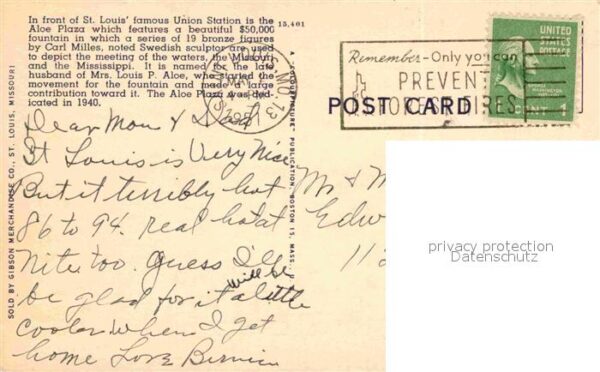 In front of St. Louis' famous Union Station is the
Aloe Plaza which features a beautiful $50,000
fountain in which a series of 19 bronze figures
by Carl Milles, noted Swedish sculptor are used
to depict the meeting of the waters, the Missouri
and the Mississippi. It is named for the late
husband of Mrs. Louis P. Aloe, who started the
movement for the fountain and made a large
contribution toward it. The Aloe Plaza was ded-
icated in 1940.
15,401
SOLD BY GIBSON MERCHANDISE CO., ST. LOUIS, MISSOURI
Remember-Only you can
PREVENT
FOREST FIRES
POST CARD
UNITED
STATES
POSTAGE
Dear Mom & Dad
St Louis is Very Nice
But it terribly hot
86 to 94. real hot at
Nite too. Guess I'll
be glad for it will be a little
cooler when I get
home Love
Mr & M
Edw
112
privacy protection
Datenschutz